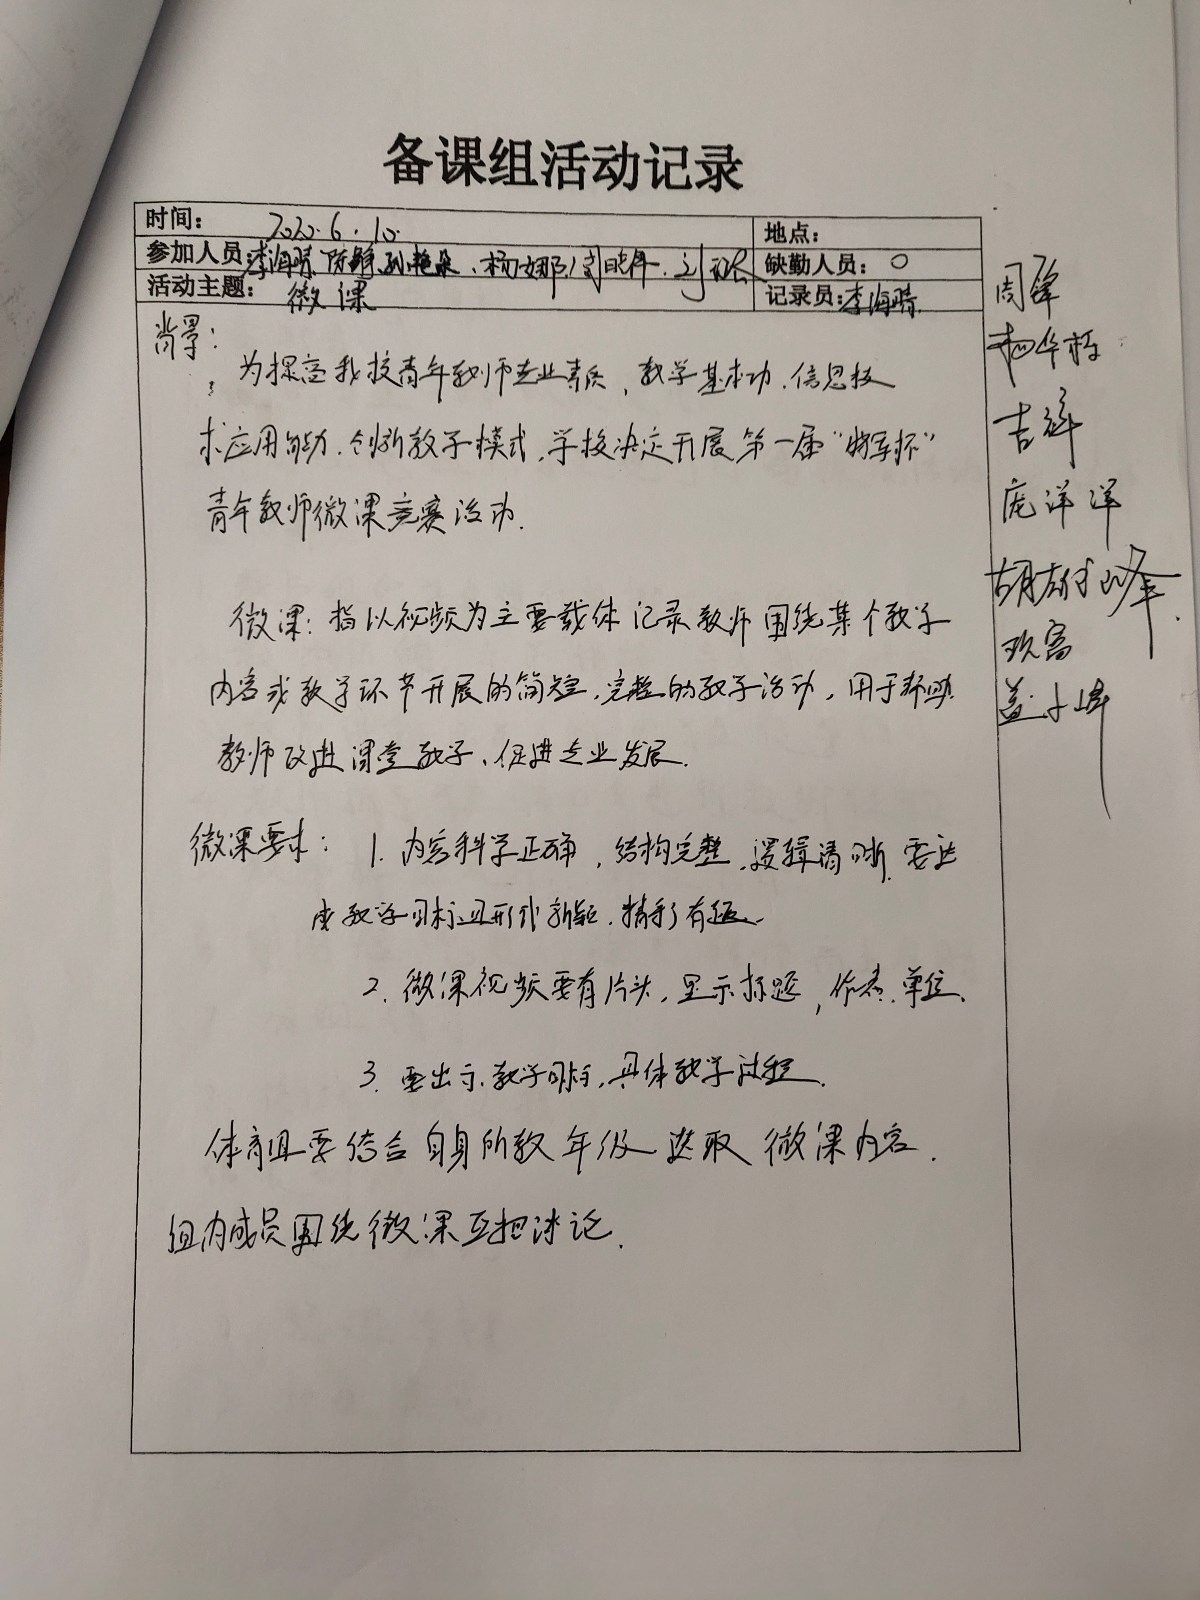 备课组活动记录
时间： 2020.6.10. 地点：
参加人员：李海晴 陈静 孙艳 杨娜 刘 缺勤人员：0
活动主题： 微课 记录员：李海晴.
背景：
为提高我校青年教师专业素质、教学基本功、信息技
术应用能力、创新教学模式,学校决定开展第一届“将军杯”
青年教师微课竞赛活动.
微课：指以视频为主要载体记录教师围绕某个教学
内容或教学环节开展的简短、完整的教学活动，用于帮助
教师改进课堂教学、促进专业发展.
微课要求： 1. 内容科学正确，结构完整、逻辑清晰，要达
成教学目标且形式新颖、精彩有趣.
2. 微课视频要有片头，显示标题，作者、单位.
3. 要出示教学目标，具体教学过程.
体育组要结合自身所教年级选取微课内容.
组内成员围绕微课互相讨论.
周锋
杨华栋
吉祥
庞洋洋
胡雄峰
孟小峰